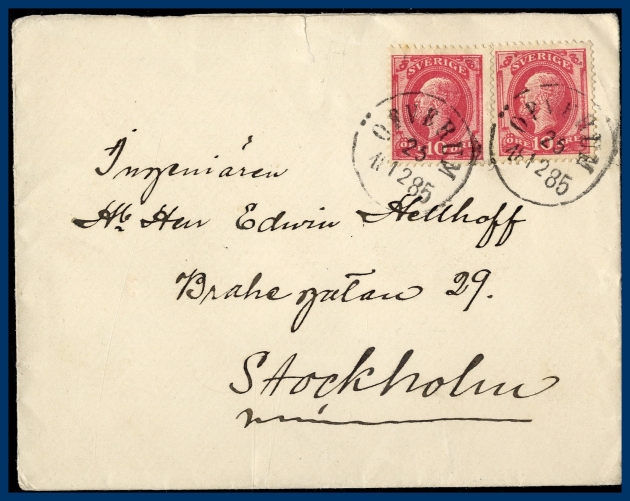 SVERIGE SVERIGE
10
ÖRE
25
12 85
12 85
Ingeniören
Hr. Herr Edwin Hellhoff
Brahegatan 29.
Stockholm